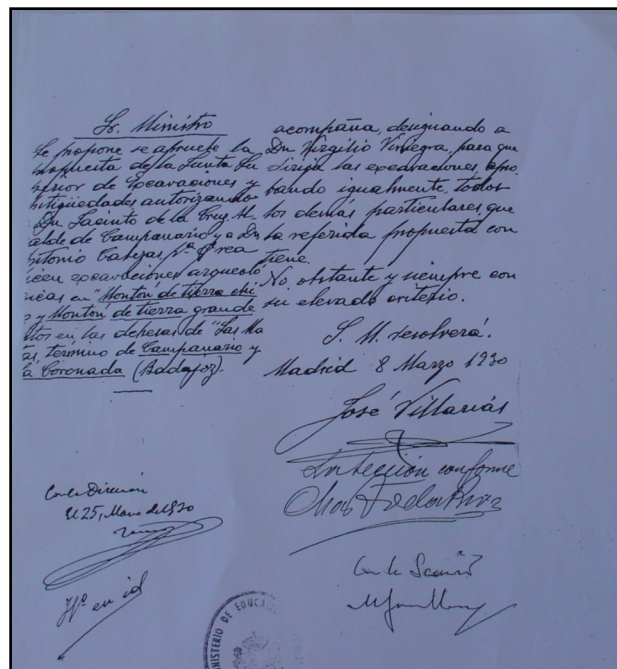 Sr. Ministro
Se propone se apruebe la
propuesta de la Junta Su
perior de Excavaciones y
Antigüedades autorizando
Dn. Jacinto de la Cruz, Al
calde de Campanario y a Dn
Antonio Cabezas, pª q' rea
licen excavaciones arqueoló
gicas en "Montón de tierra chi
co y Montón de tierra grande
sitos en las dehesas de "Las Ma
término de Campanario y
La Coronada (Badajoz).
acompaña, designando a
Dn Virgilio Viniegra, para que
dirija las excavaciones, apro
bando igualmente, todos
los demás particulares que
la referida propuesta con
tiene.
No obstante y siempre con
su elevado criterio.
S. M. resolverá.
Madrid 8 Marzo 1930
José Villarías
La Sección conforme
Con la Dirección
25, Marzo de 1930
Fº en id
Con la Sección
MINISTERIO DE EDUCA